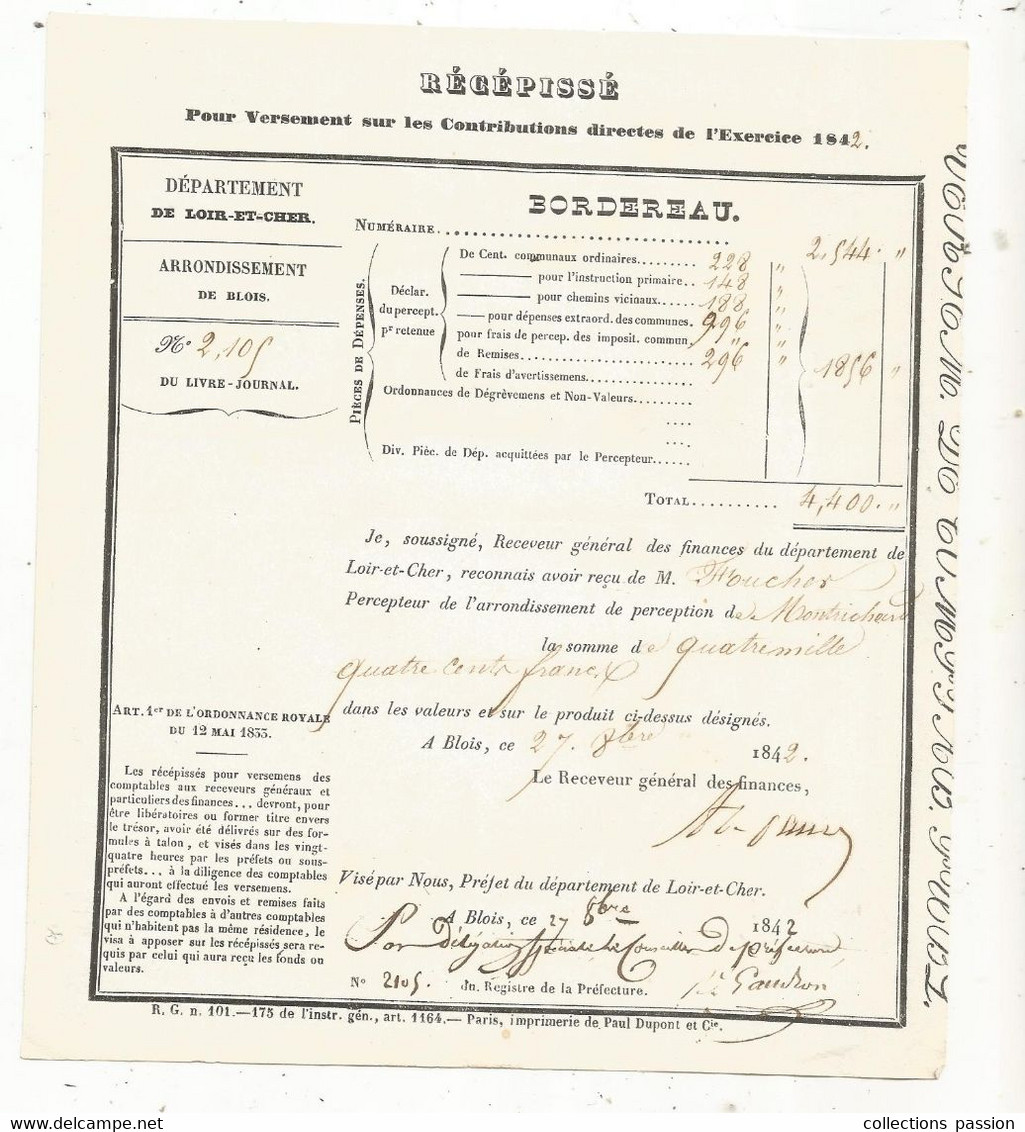 RÉCÉPISSÉ
Pour Versement sur les Contributions directes de l'Exercice 1842.
DÉPARTEMENT
DE LOIR-ET-CHER.
ARRONDISSEMENT
DE BLOIS.
N° 2,105
DU LIVRE-JOURNAL.
BORDEREAU.
NUMÉRAIRE.............................. 2,544. "
PIÈCES DE DÉPENSES.
Déclar.
du percept.
pr retenue
De Cent. communaux ordinaires......... 228 "
——— pour l'instruction primaire.. 148 "
——— pour chemins vicinaux...... 188 "
—— pour dépenses extraord. des communes. 996 "
pour frais de percep. des imposit. commun, " "
de Remises........................ 296 " 1856 "
de Frais d'avertissemens..............
Ordonnances de Dégrèvemens et Non-Valeurs.........
....
....
Div. Pièc. de Dép. acquittées par le Percepteur......
TOTAL.......... 4,400. "
Je, soussigné, Receveur général des finances du département de
Loir-et-Cher, reconnais avoir reçu de M. Foucher
Percepteur de l'arrondissement de perception de Montrichard
la somme de quatre mille
quatre cents francs
dans les valeurs et sur le produit ci-dessus désignés.
A Blois, ce 27. 8bre 1842.
Le Receveur général des finances,
ART. 1er DE L'ORDONNANCE ROYALE
DU 12 MAI 1833.
Les récépissés pour versemens des
comptables aux receveurs généraux et
particuliers des finances... devront, pour
être libératoires ou former titre envers
le trésor, avoir été délivrés sur des for-
mules à talon, et visés dans les vingt-
quatre heures par les préfets ou sous-
préfets... à la diligence des comptables
qui auront effectué les versemens.
A l'égard des envois et remises faits
par des comptables à d'autres comptables
qui n'habitent pas la même résidence, le
visa à apposer sur les récépissés sera re-
quis par celui qui aura reçu les fonds ou
valeurs.
Visé par Nous, Préfet du département de Loir-et-Cher.
A Blois, ce 27 8bre 1842
Par Délégation Spéciale Le Conseiller De préfecture,
N° 2105. du Registre de la Préfecture.
R. G. n. 101.—175 de l'instr. gén., art. 1164.— Paris, imprimerie de Paul Dupont et Cie.
collections passion